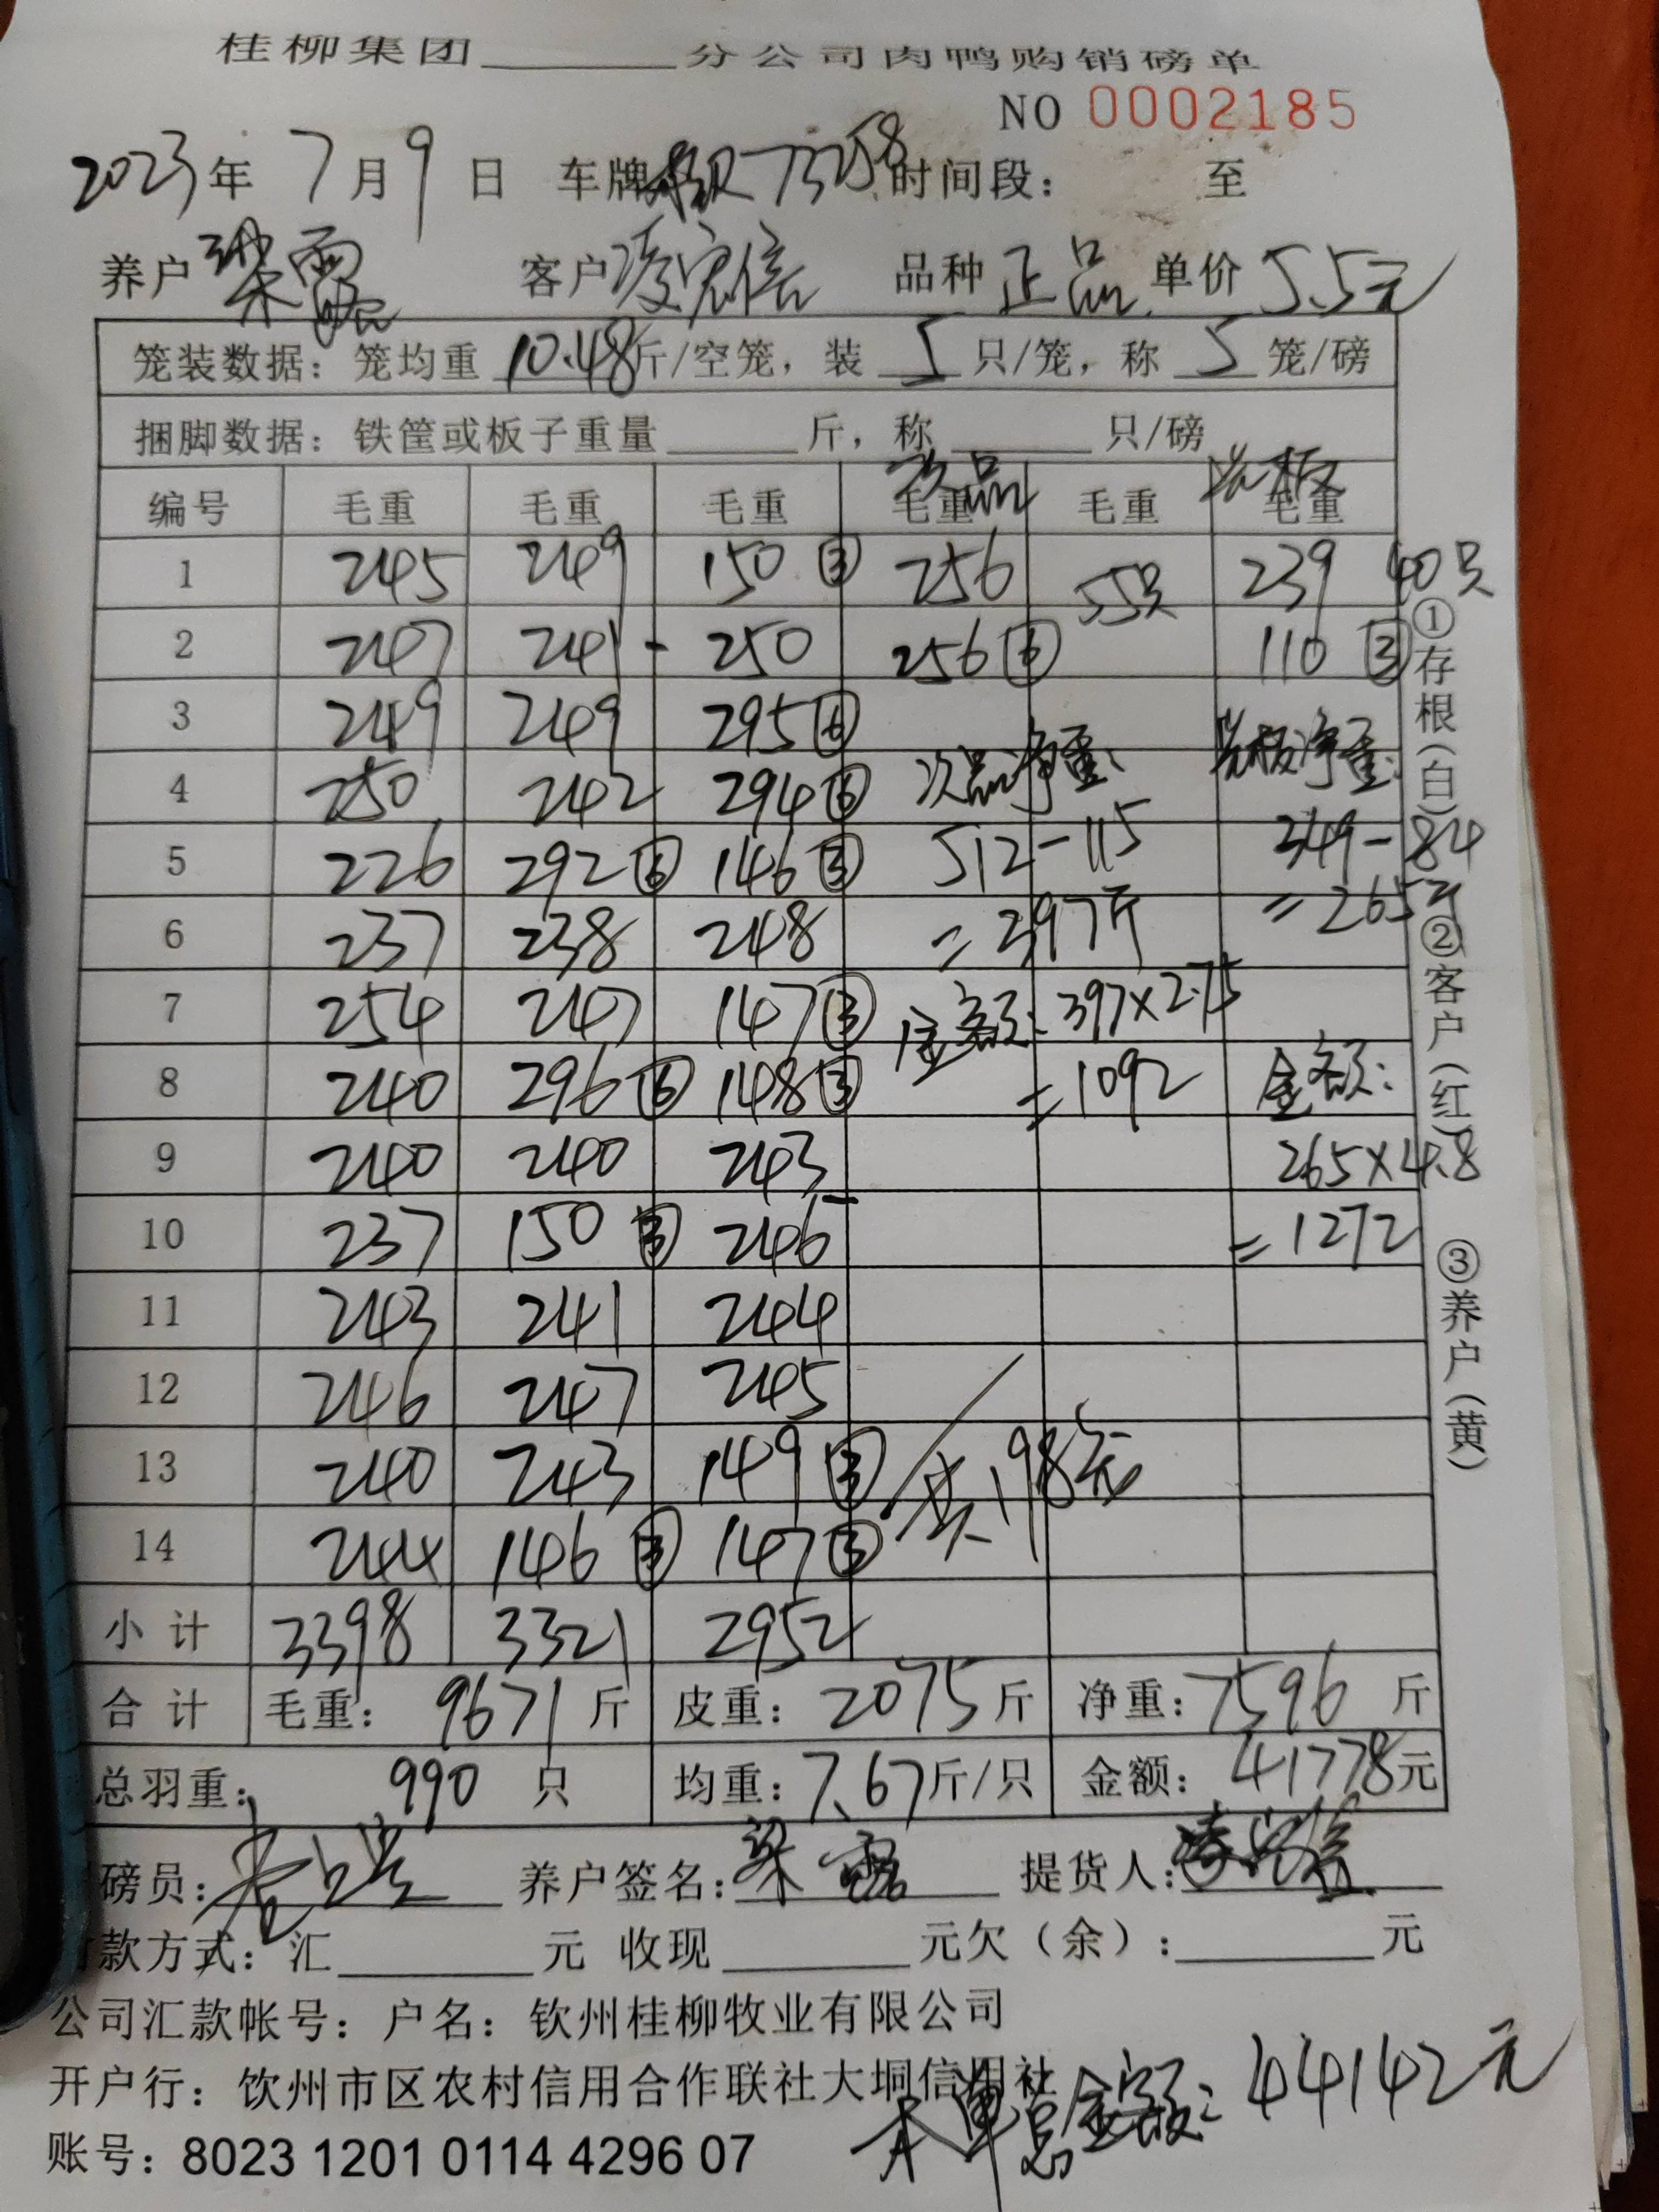 桂柳集团________分公司肉鸭购销磅单
NO 0002185
2023年 7月9日 车牌 73258 时间段： 至
养户 梁露 客户 凌宏信 品种 正品 单价 5.5元
笼装数据：笼均重 10.48斤/空笼，装 5 只/笼，称 5 笼/磅
捆脚数据：铁筐或板子重量______斤，称______只/磅
次品 光板
编号 毛重 毛重 毛重 毛重 毛重 毛重
1 245 249 150 ③ 256 55只 239 40只
2 247 241 - 250 256 ⑥ 110 ③
3 249 249 295 ⑥
4 250 242 294 ⑥ 次品净重： 光板净重：
5 226 292 ⑥ 146 ③ 512-115 349-84
6 237 238 248 =397斤 =265斤
7 254 247 147 ③ 金额：397×2.75
8 240 296 ⑥ 148 ③ =1092 金额：
9 240 240 243 265×4.8
10 237 150 ③ 246 =1272
11 243 241 244
12 246 247 245
13 240 243 149 ③ 共198笼
14 244 146 ③ 147 ③
小计 3398 3321 2952
合计 毛重： 9671 斤 皮重：2075斤 净重：7596 斤
总羽重： 990 只 均重：7.67斤/只 金额：41778元
磅员： 养户签名：梁露 提货人：
款方式：汇________元 收现________元欠（余）：________元
公司汇款帐号：户名：钦州桂柳牧业有限公司
开户行：钦州市区农村信用合作联社大垌信用社
本单总金额：44142元
账号：8023 1201 0114 4296 07
①存根（白）②客户（红）③养户（黄）